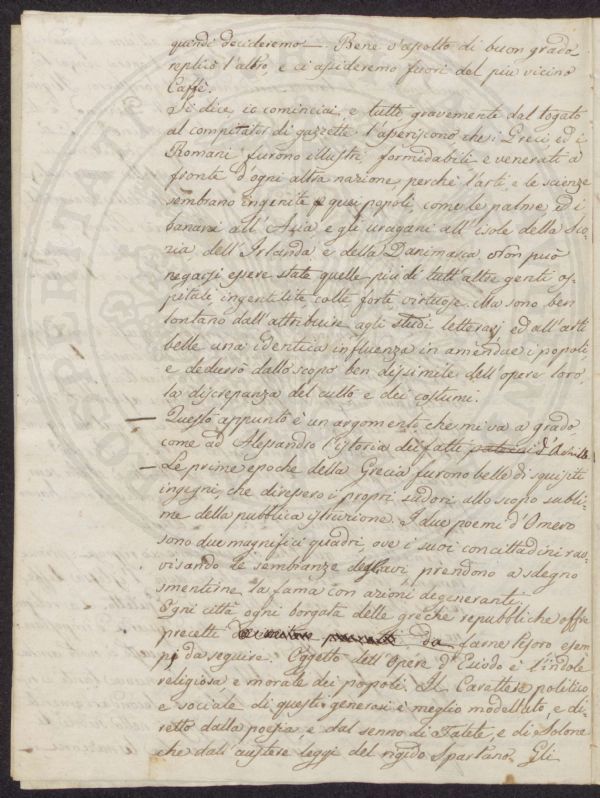 quindi decideremo — Bene v'ascolto di buon grado
replicò l'altro, e ci assideremo fuori del più vicino
Caffè.
Si dice io cominciai, e tutti gravemente dal togato
al compitator di gazzette l'asseriscono che i Greci ed i
Romani furono illustri formidabili e venerati a
fronte d'ogni altra nazione, perchè l'arti, e le scienze
sembrano ingenite a quei popoli, come le palme ed i
banani all'Asia e gli uragani all'isole della Sco-
zia, dell'Irlanda e della Danimarca. Non può
negarsi essere state quelle più di tutt'altre genti os-
pitali ingentilite colle forti virtuose. Ma sono ben
lontano dall'attribuire agli studi letterarj ed all'arti
belle una identica influenza in amendue i popoli
e dedurrò dallo scopo ben dissimile dell'opere loro
la discrepanza del culto e dei costumi.
— Questo appunto è un argomento che mi va a grado
come ad Alessandro l'istoria dei fatti d'Achille
— Le prime epoche della Grecia furono belle di squisiti
ingegni, che diressero i propri sudori allo scopo subli-
me della pubblica istruzione. I due poemi d'Omero
sono due magnifici quadri, ove i suoi concittadini rav-
visando le sembianze degli avi, prendono a sdegno
smentirne la fama con azioni degeneranti.
Ogni città ogni borgata delle greche repubbliche offre
precetti da farne tesoro esem-
pj da seguire. Oggetto dell'Opere d'Esiodo è l'indole
religiosa e morale dei popoli. Il Carattere politico
e sociale di questi generosi è meglio modellato, e di-
retto dalla poesia e dal senno di Talete, e di Solone
che dall'austere leggi del rigido Spartano. Gli